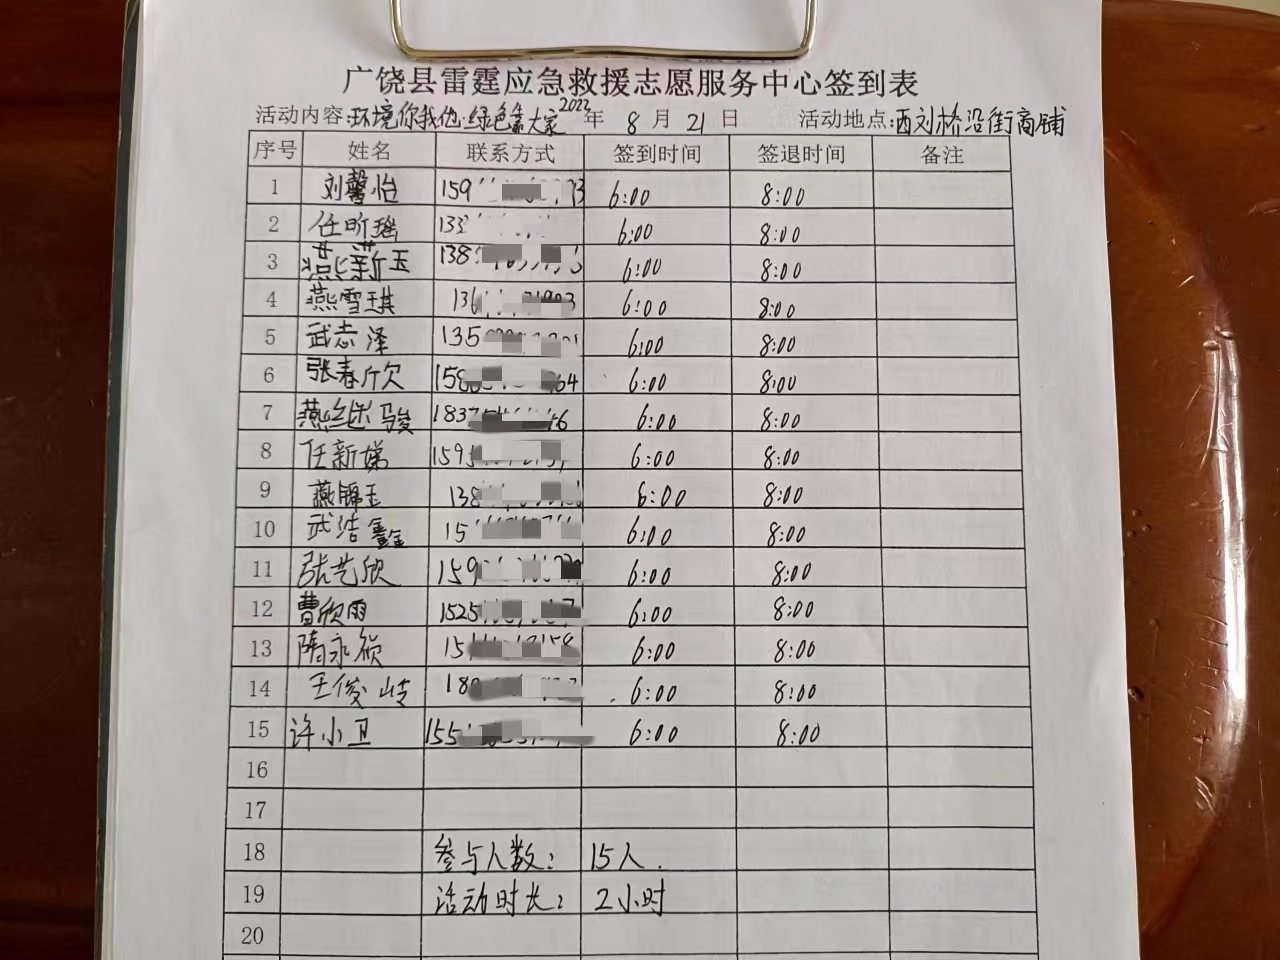 广饶县雷霆应急救援志愿服务中心签到表
活动内容:环境你我他·绿色靠大家 2022年 8月21日 活动地点:西刘桥沿街商铺
序号 姓名 联系方式 签到时间 签退时间 备注
1 刘馨怡 159 6:00 8:00
2 任昕瑶 133 6:00 8:00
3 燕新玉 138 6:00 8:00
4 燕雪琪 136 6:00 8:00
5 武志泽 135 6:00 8:00
6 张春欣 158 64 6:00 8:00
7 燕继骏 1837 6 6:00 8:00
8 任新娣 1595 6:00 8:00
9 燕锦玉 138 6:00 8:00
10 武浩鑫 15 6:00 8:00
11 张艺欣 159 6:00 8:00
12 曹欣雨 1525 6:00 8:00
13 隋永硕 15 6:00 8:00
14 王俊岐 18 6:00 8:00
15 许小卫 155 6:00 8:00
16
17
18 参与人数: 15人.
19 活动时长: 2小时
20